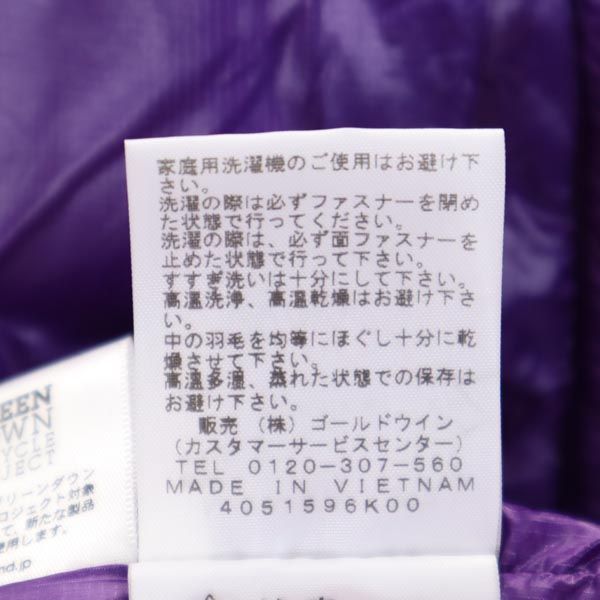 家庭用洗濯機のご使用はお避け下
さい。
洗濯の際は必ずファスナーを閉め
た状態で行ってください。
洗濯の際は、必ず面ファスナーを
止めた状態で行って下さい。
すすぎ洗いは十分にして下さい。
高温洗浄、高温乾燥はお避け下さ
い。
中の羽毛を均等にほぐし十分に乾
燥させて下さい。
高温多湿、蒸れた状態での保存は
お避け下さい。
販売 (株) ゴールドウイン
(カスタマーサービスセンター)
TEL 0120-307-560
MADE IN VIETNAM
4051596K00
EEN
WN
YCLE
JECT
リーンダウン
ロジェクト対象
て、新たな製品
使用します。
nd.jp